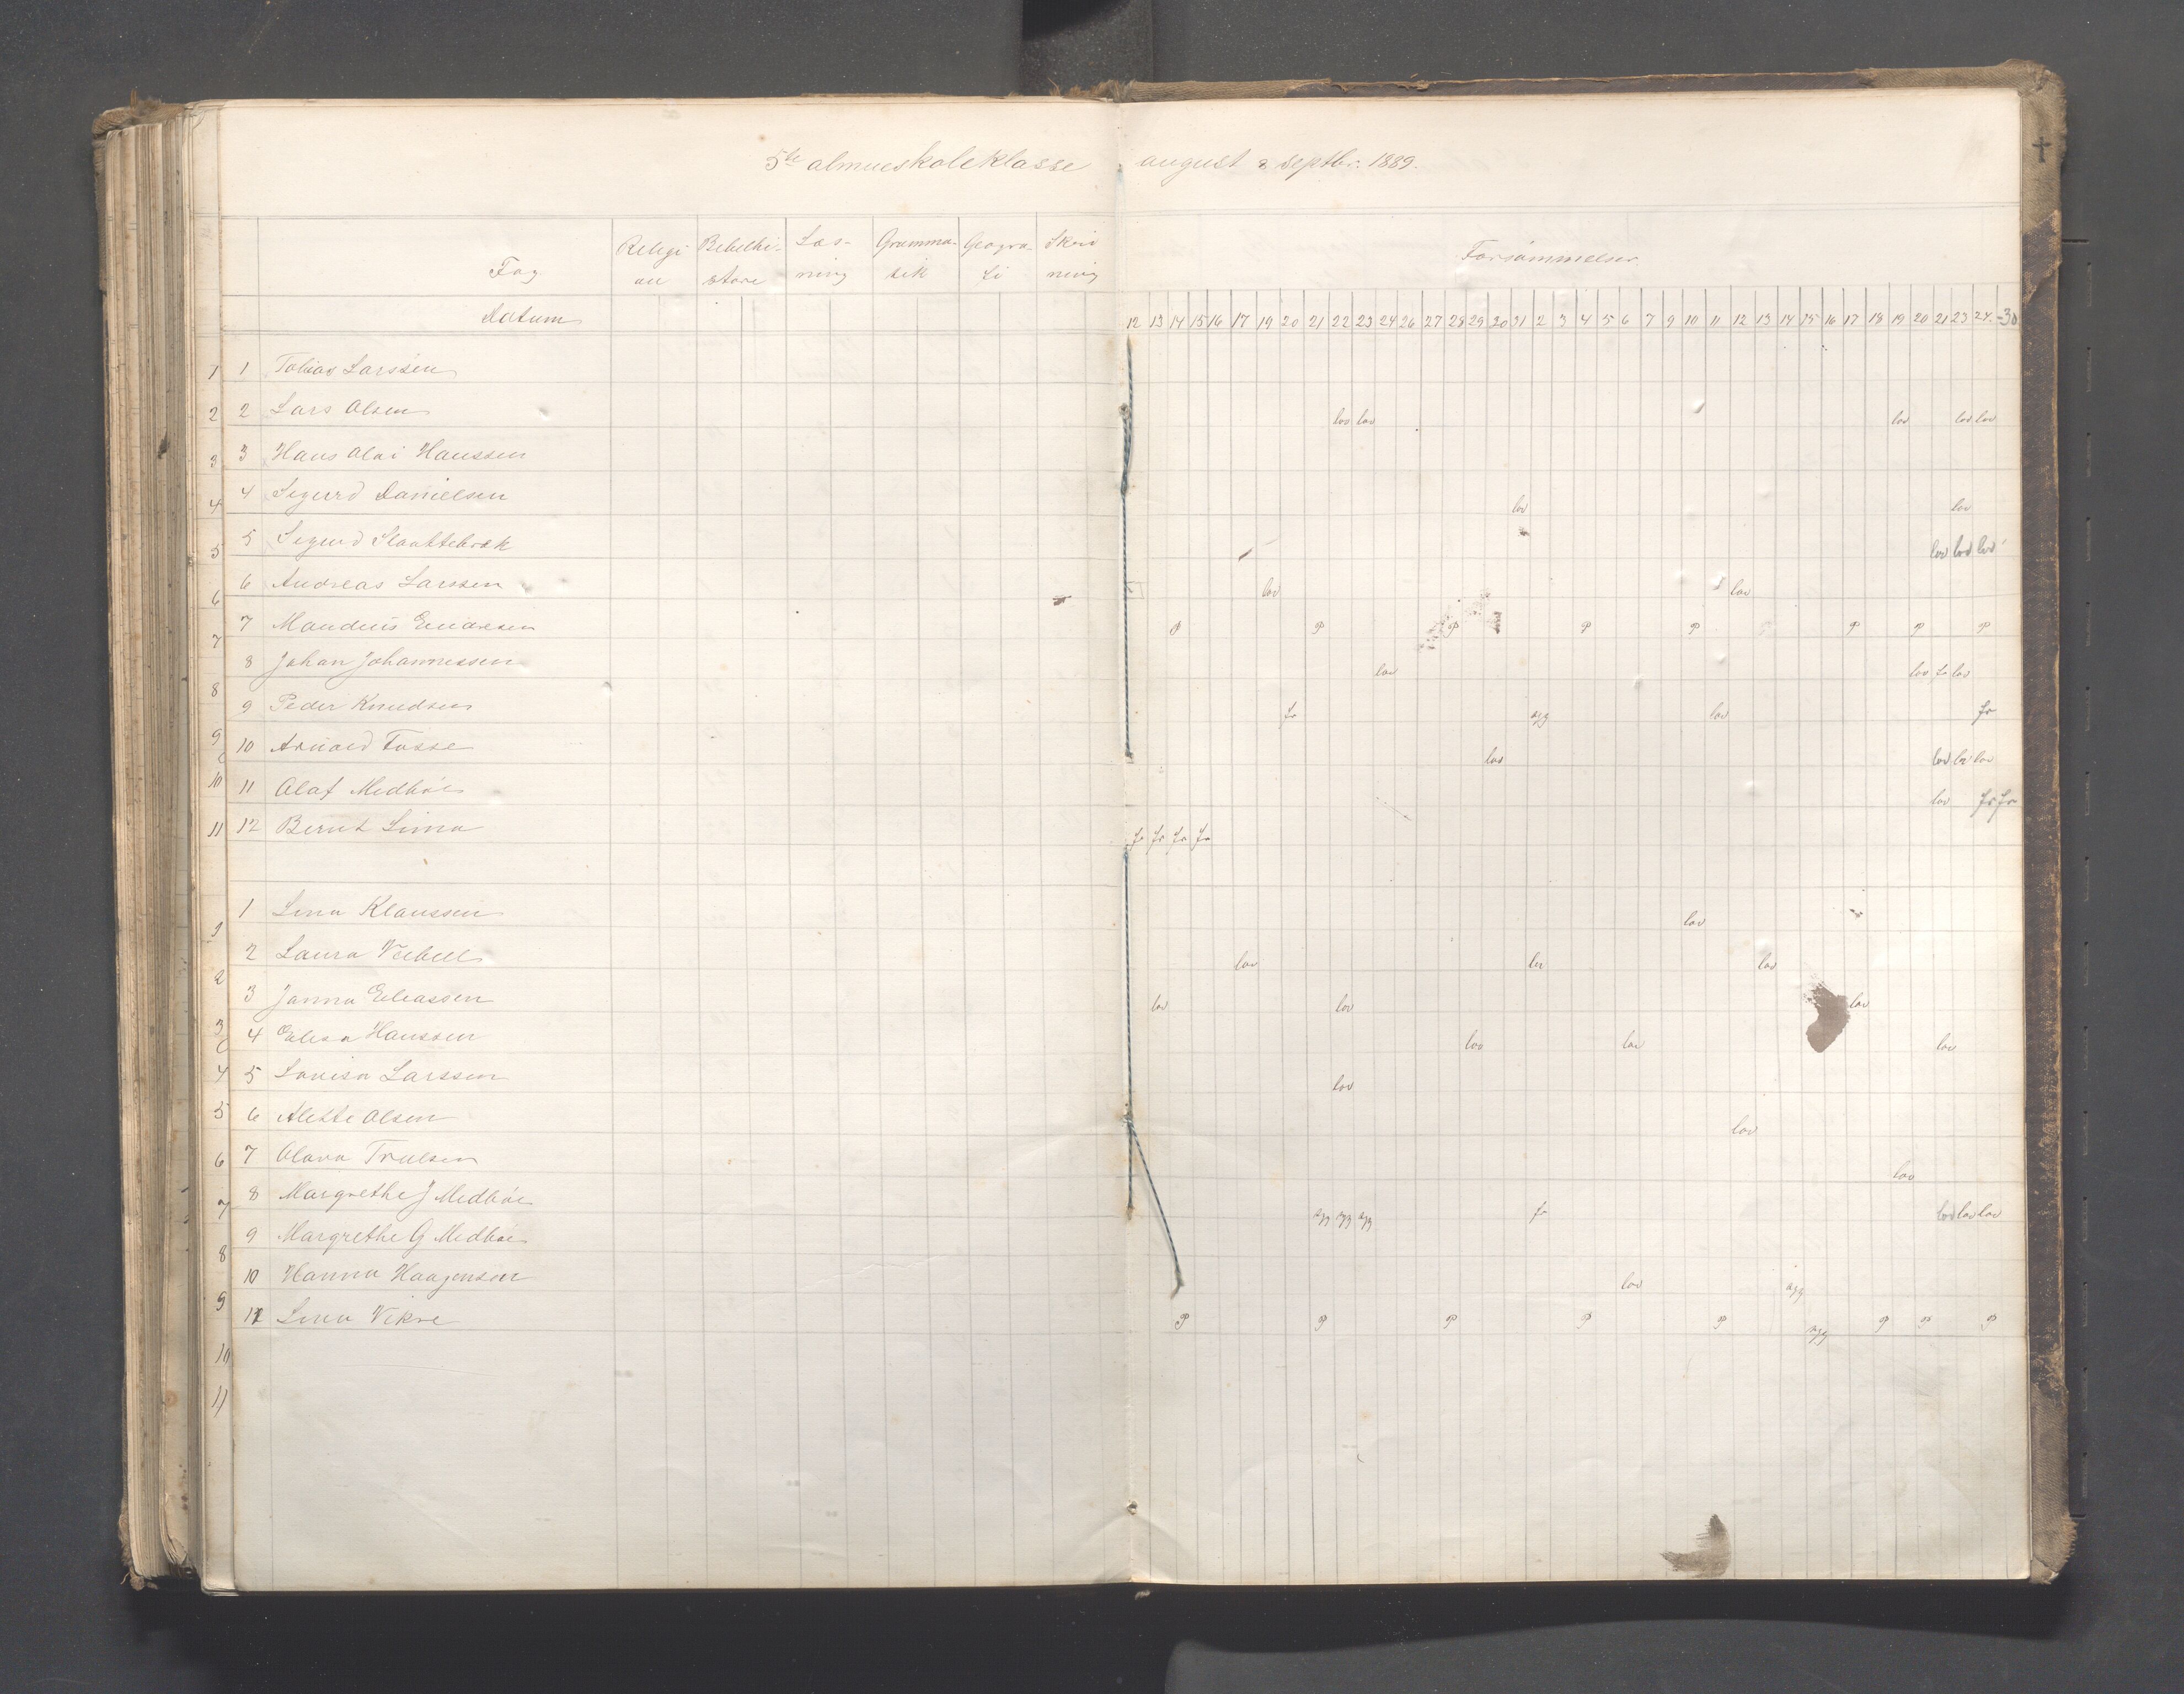 5te almueskoleklasse august & septbr. 1889.
Fag Religi Bebelhi- Læs- Gramma- Geogra- Skri Forsømmelser
on storie ning tik fi vning
Datum 12 13 14 15 16 17 19 20 21 22 23 24 26 27 28 29 30 31 2 3 4 5 6 7 9 10 11 12 13 14 15 16 17 18 19 20 21 23 24 -30
1 1 Tobias Larssen
2 2 Lars Olsen lov lov lov lov lov
3 3 Hans Olai Hanssen
4 4 Sigurd Danielsen lov lov
5 5 Sigurd Slaattebræk lov lov lov
6 6 Andreas Larssen lov lov
7 7 Mandius Einarsen P P P P P P P P
8 8 Johan Johannessen lov lov fr lov
9 9 Peder Knudsen fr syg lov fr
10 10 Arnold Fosse lov lov lov lov
11 11 Olaf Medbøe lov fr fr
12 Bernt Lima fr fr fr fr
1 1 Lina Klaussen lov
2 2 Laura Veibell lov lov lov
3 3 Janna Eliassen lov lov lov
4 4 Elisa Hanssen lov lov lov
5 5 Lovisa Larssen lov
6 6 Alette Olsen lov
7 7 Olava Trulsen lov
8 8 Margrethe J Medbøe syg syg syg fr lov lov lov
9 9 Margrethe G Medbøe
10 10 Hanna Haagensen lov syg
11 11 Lina Vikre P P P P P syg P P P